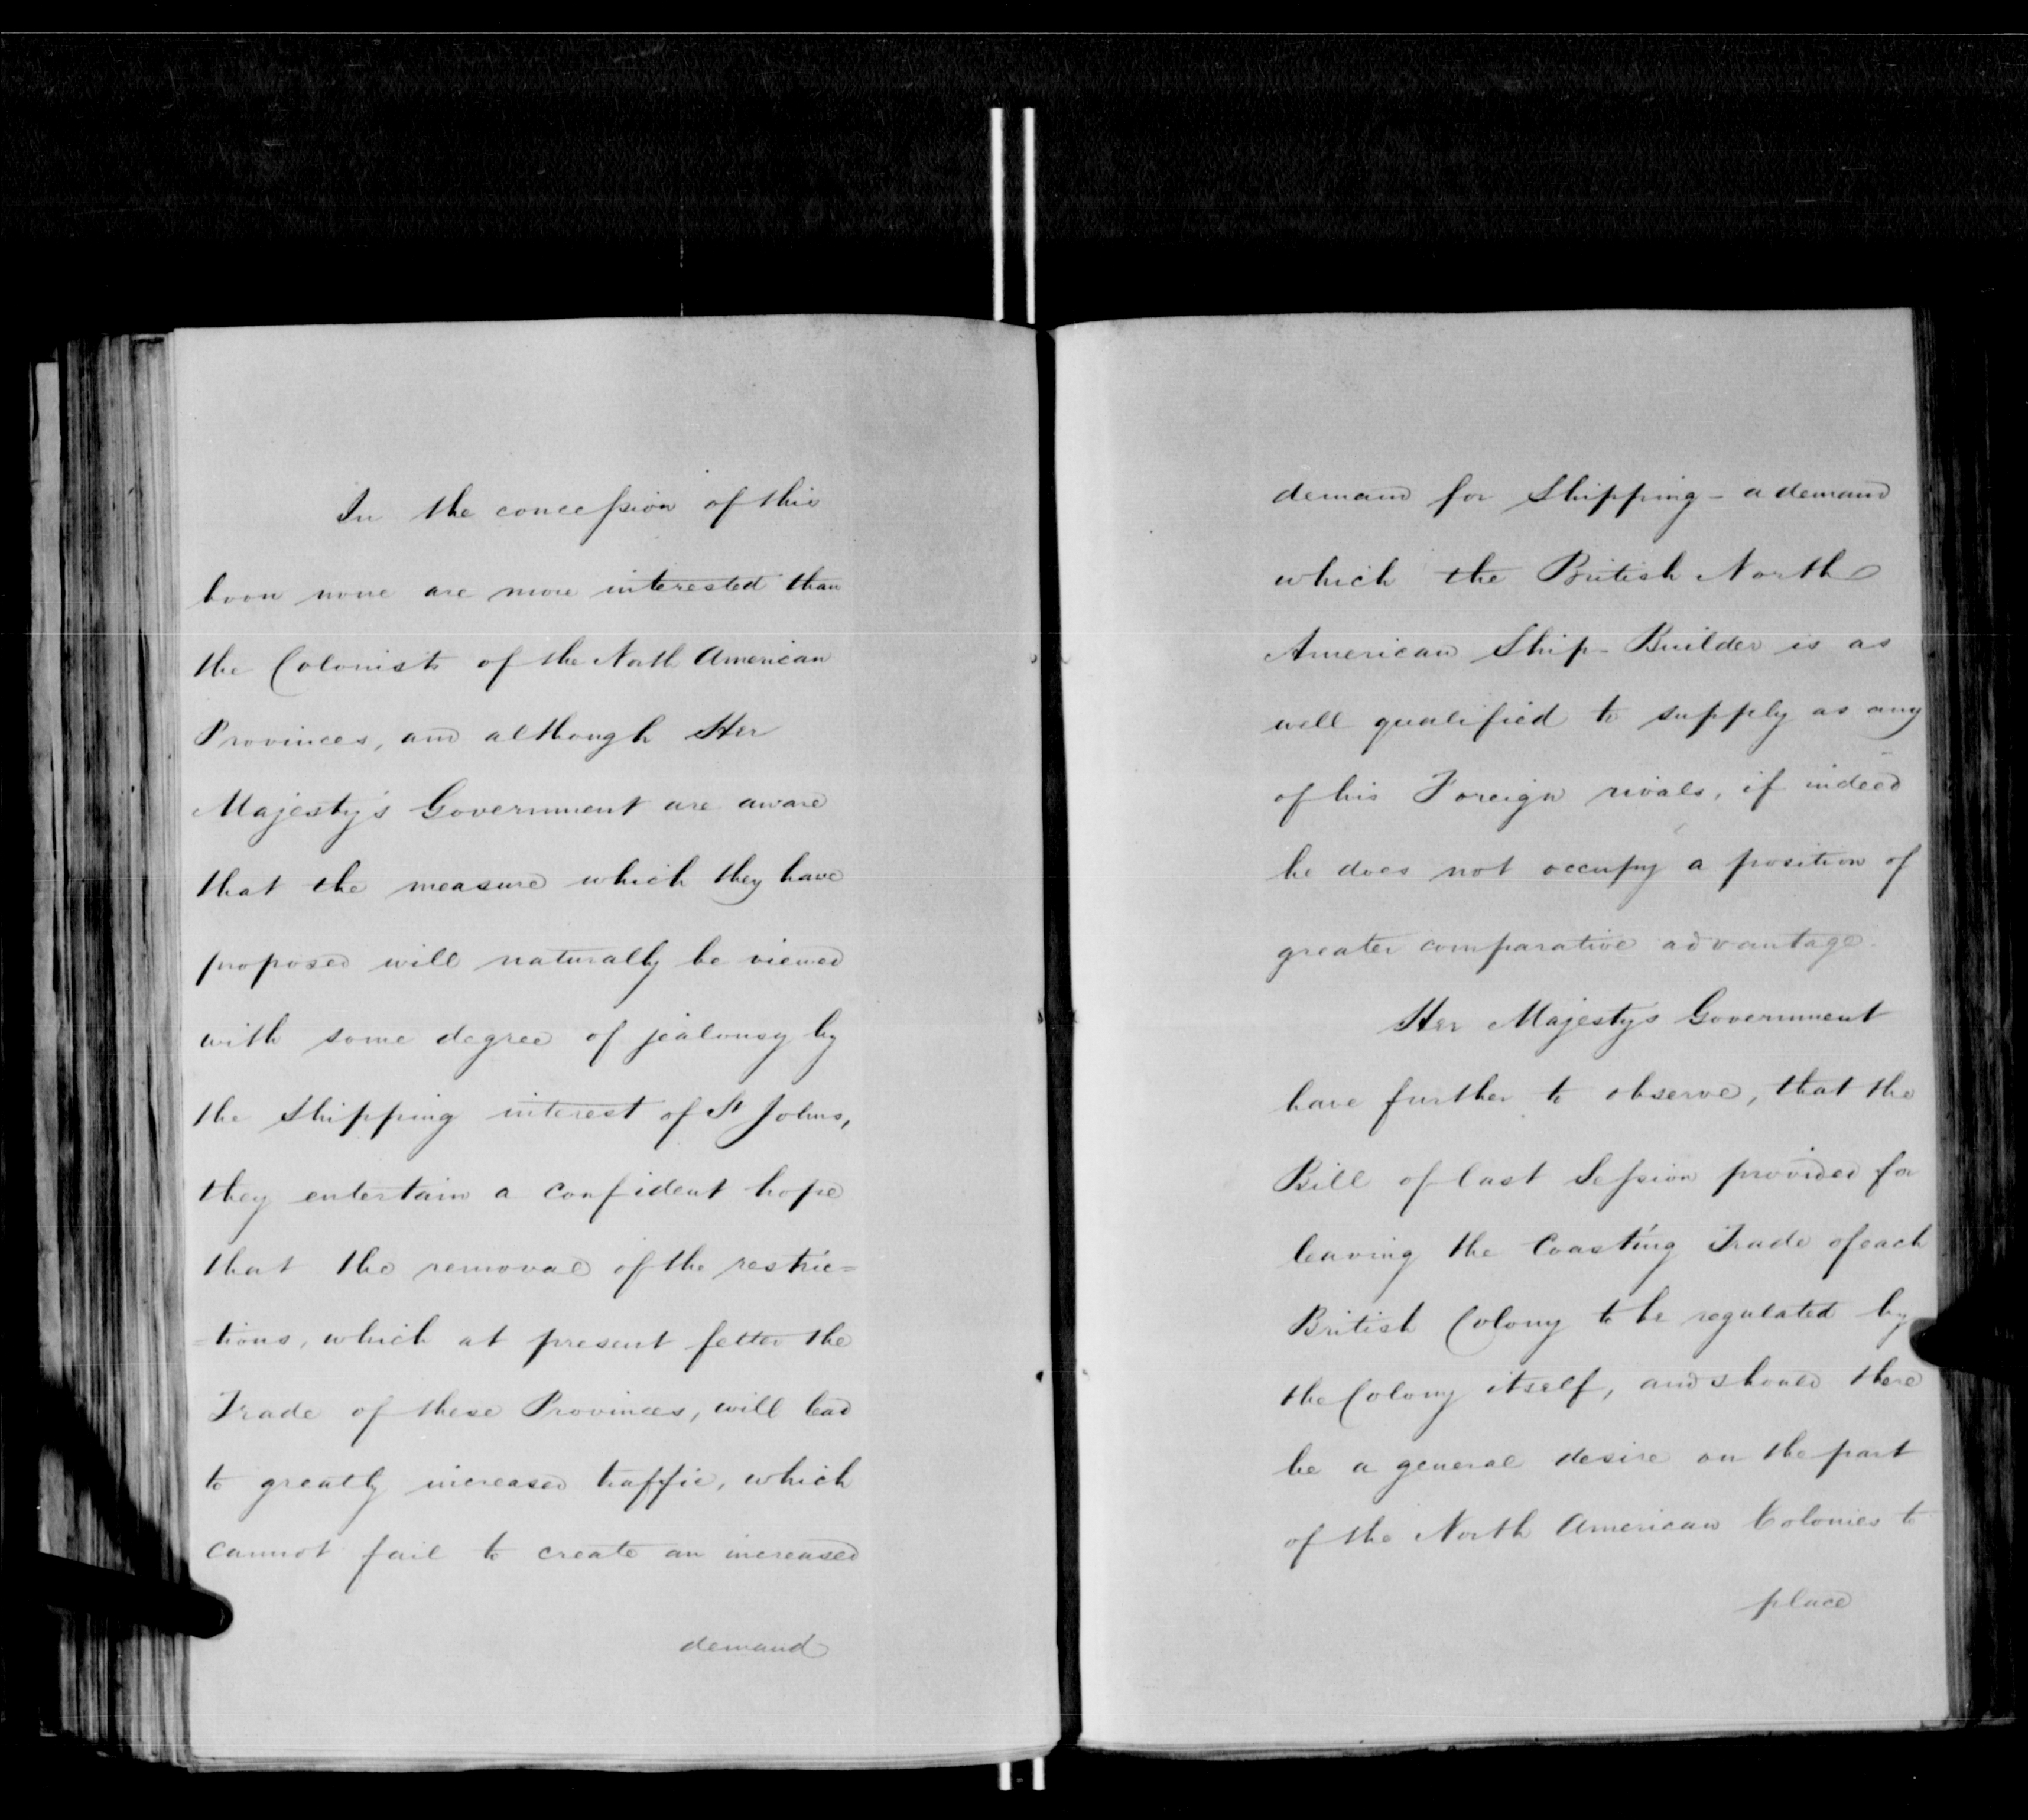 In the concession of this
boon none are more interested than
the Colonists of the North American
Provinces, and although Her
Majesty's Government are aware
that the measure which they have
proposed will naturally be viewed
with some degree of jealousy by
the Shipping interest of St Johns,
they entertain a confident hope
that the removal of the restric=
=tions, which at present fetter the
Trade of these Provinces, will lead
to greatly increased traffic, which
cannot fail to create an increased
demand
demand for Shipping - a demand
which the British North
American Ship-Builder is as
well qualified to supply as any
of his Foreign rivals, if indeed
he does not occupy a position of
greater comparative advantage.
Her Majestys Government
have further to observe, that the
Bill of last Session provided for
leaving the Coasting Trade of each
British Colony to be regulated by
the Colony itself, and should there
be a general desire on the part
of the North American Colonies to
place